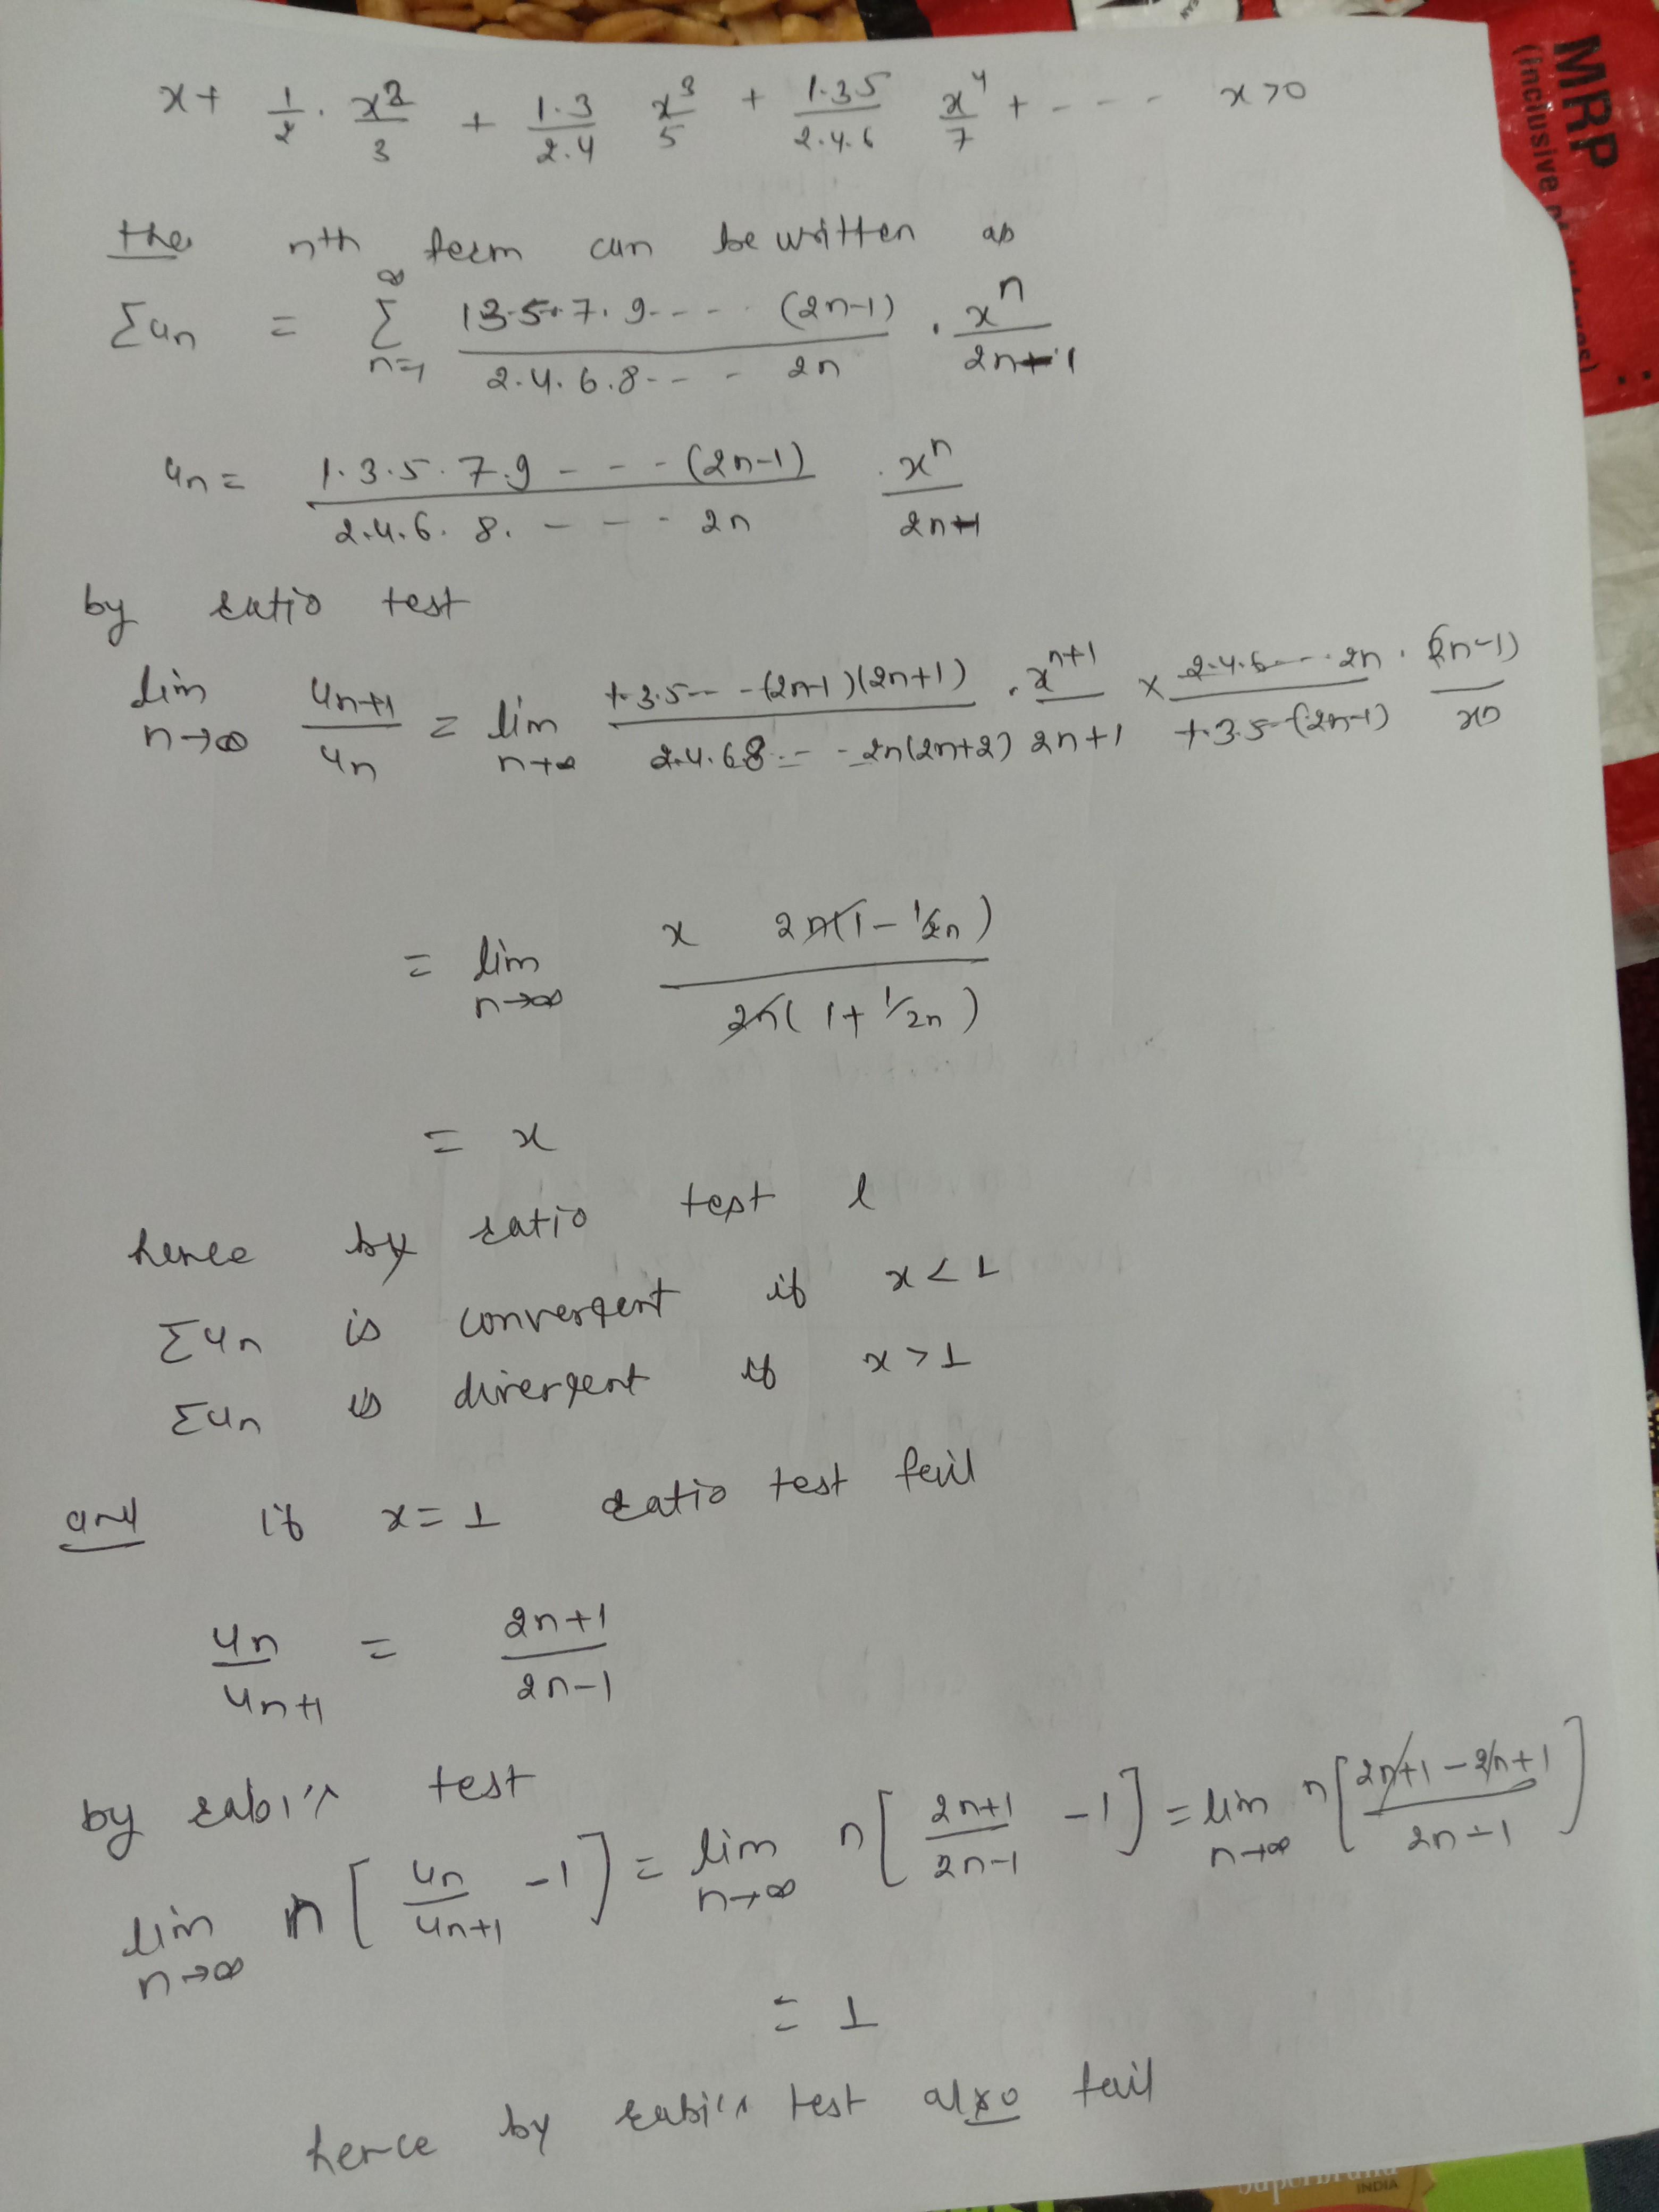 x + 1/2 · x²/3 + 1·3/2·4 x³/5 + 1·3·5/2·4·6 x⁴/7 + - - - x>0
the nth term can be written as
Σun = Σ_{n=1}^{∞} 1 3·5·7·9---- (2n-1)/2·4·6·8--- 2n · xⁿ/2n+1
un = 1·3·5·7·9 - - - (2n-1)/2·4·6·8· - - - 2n · xⁿ/2n-1
by ratio test
lim n→∞ un+1/un = lim n→∞ 1·3·5-- -(2n-1)(2n+1)/2·4·6·8 -- - 2n(2n+2) · xⁿ⁺¹/2n+1 × 2·4·6--- 2n/1·3·5-(2n-1) · (2n-1)/xⁿ
= lim n→∞ x 2n(1 - 1/2n)/2n(1 + 1/2n)
= x
hence by ratio test l
Σun is convergent if x < 1
Σun is divergent if x > 1
and if x = 1 ratio test fail
un/un+1 = 2n+1/2n-1
by rabi's test
lim n→∞ n[un/un+1 -1] = lim n→∞ n[2n+1/2n-1 -1] = lim n→∞ n[2n+1-2n+1/2n-1]
= 1
hence by rabi's test also fail
MRP
(Inclusive
INDIA